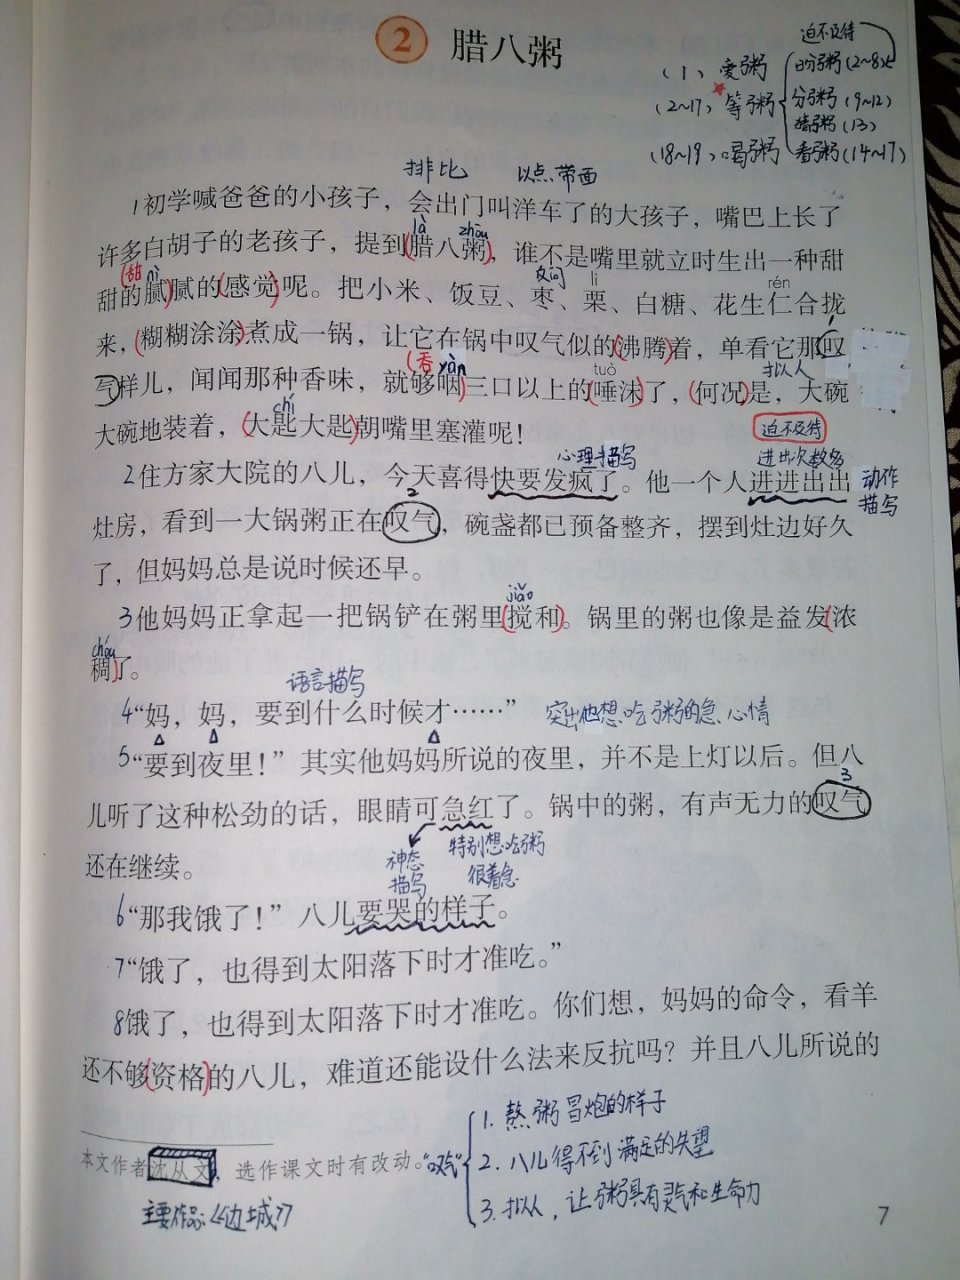 2 腊八粥
迫不及待
(1) 爱粥
盼粥(2~8)
(2~17) 等粥
分粥(9~12)
猜粥(13)
(18~19) 喝粥
看粥(14~17)
排比 以点带面
1初学喊爸爸的小孩子，会出门叫洋车了的大孩子，嘴巴上长了
là zhōu
许多白胡子的老孩子，提到(腊八粥)，谁不是嘴里就立时生出一种甜
(甜 nì 反问 lì rén
甜的腻)腻的(感觉)呢。把小米、饭豆、枣、栗、白糖、花生仁合拢
1
来，(糊糊涂涂)煮成一锅，让它在锅中叹气似的(沸腾)着，单看它那叹
(香 yàn tuò 拟人
气样儿，闻闻那种香味，就够咽)三口以上的(唾沫)了，(何况)是，大碗
chí 迫不及待
大碗地装着，(大匙大匙)朝嘴里塞灌呢！
心理描写 进出次数多
2住方家大院的八儿，今天喜得快要发疯了。他一个人进进出出 动作描写
2
灶房，看到一大锅粥正在叹气，碗盏都已预备整齐，摆到灶边好久
了，但妈妈总是说时候还早。
jiǎo
3他妈妈正拿起一把锅铲在粥里(搅和)。锅里的粥也像是益发(浓
chóu
稠)了。
语言描写
4“妈，妈，要到什么时候才……” 突出他想吃粥的急心情
5“要到夜里！” 其实他妈妈所说的夜里，并不是上灯以后。但八
3
儿听了这种松劲的话，眼睛可急红了。锅中的粥，有声无力的叹气
还在继续。
神态描写
特别想吃粥
很着急
6“那我饿了！” 八儿要哭的样子。
7“饿了，也得到太阳落下时才准吃。”
8饿了，也得到太阳落下时才准吃。你们想，妈妈的命令，看羊
还不够(资格)的八儿，难道还能设什么法来反抗吗？并且八儿所说的
本文作者沈从文，选作课文时有改动。
主要作品：《边城》
“叹气”
1. 熬粥冒炮的样子
2. 八儿得不到满足的失望
3. 拟人，让粥具有灵气和生命力
7